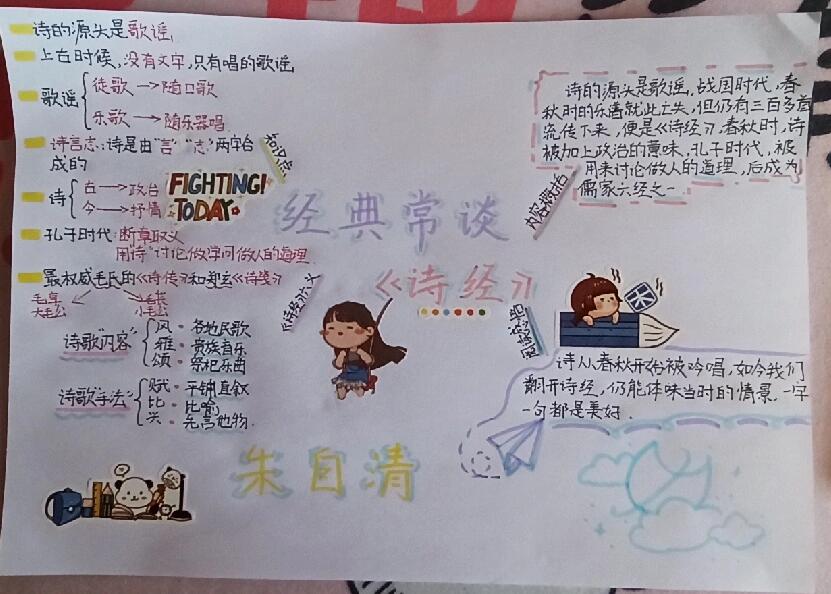 诗的源头是歌谣
上古时候,没有文字,只有唱的歌谣
歌谣
徒歌→随口歌
乐歌→随乐器唱
诗言志:诗是由"言""志"两字合
成的
知识点
诗
古→政治
今→抒情
FIGHTING!
TODAY
孔子时代:断章取义
用"诗"讨论做学问做人的道理
最权威毛氏的《诗传》和郑玄《诗笺》
毛亨
大毛公
毛苌
小毛公
《诗经》六义
诗歌"内容"
风·各地民歌
雅·贵族音乐
颂·祭祀乐曲
诗歌"手法"
赋·平铺直叙
比·比喻
兴·先言他物
经典常谈
《诗经》
朱自清
内容概括
诗的源头是歌谣,战国时代,春
秋时的乐谱就此亡失,但仍有三百多首
流传下来,便是《诗经》,春秋时,诗
被加上政治的意味,孔子时代,被
用来讨论做人的道理,后成为
儒家六经之一
诗从春秋开始被吟唱,如今我们
翻开诗经,仍能体味当时的情景,一字
一句都是美好.